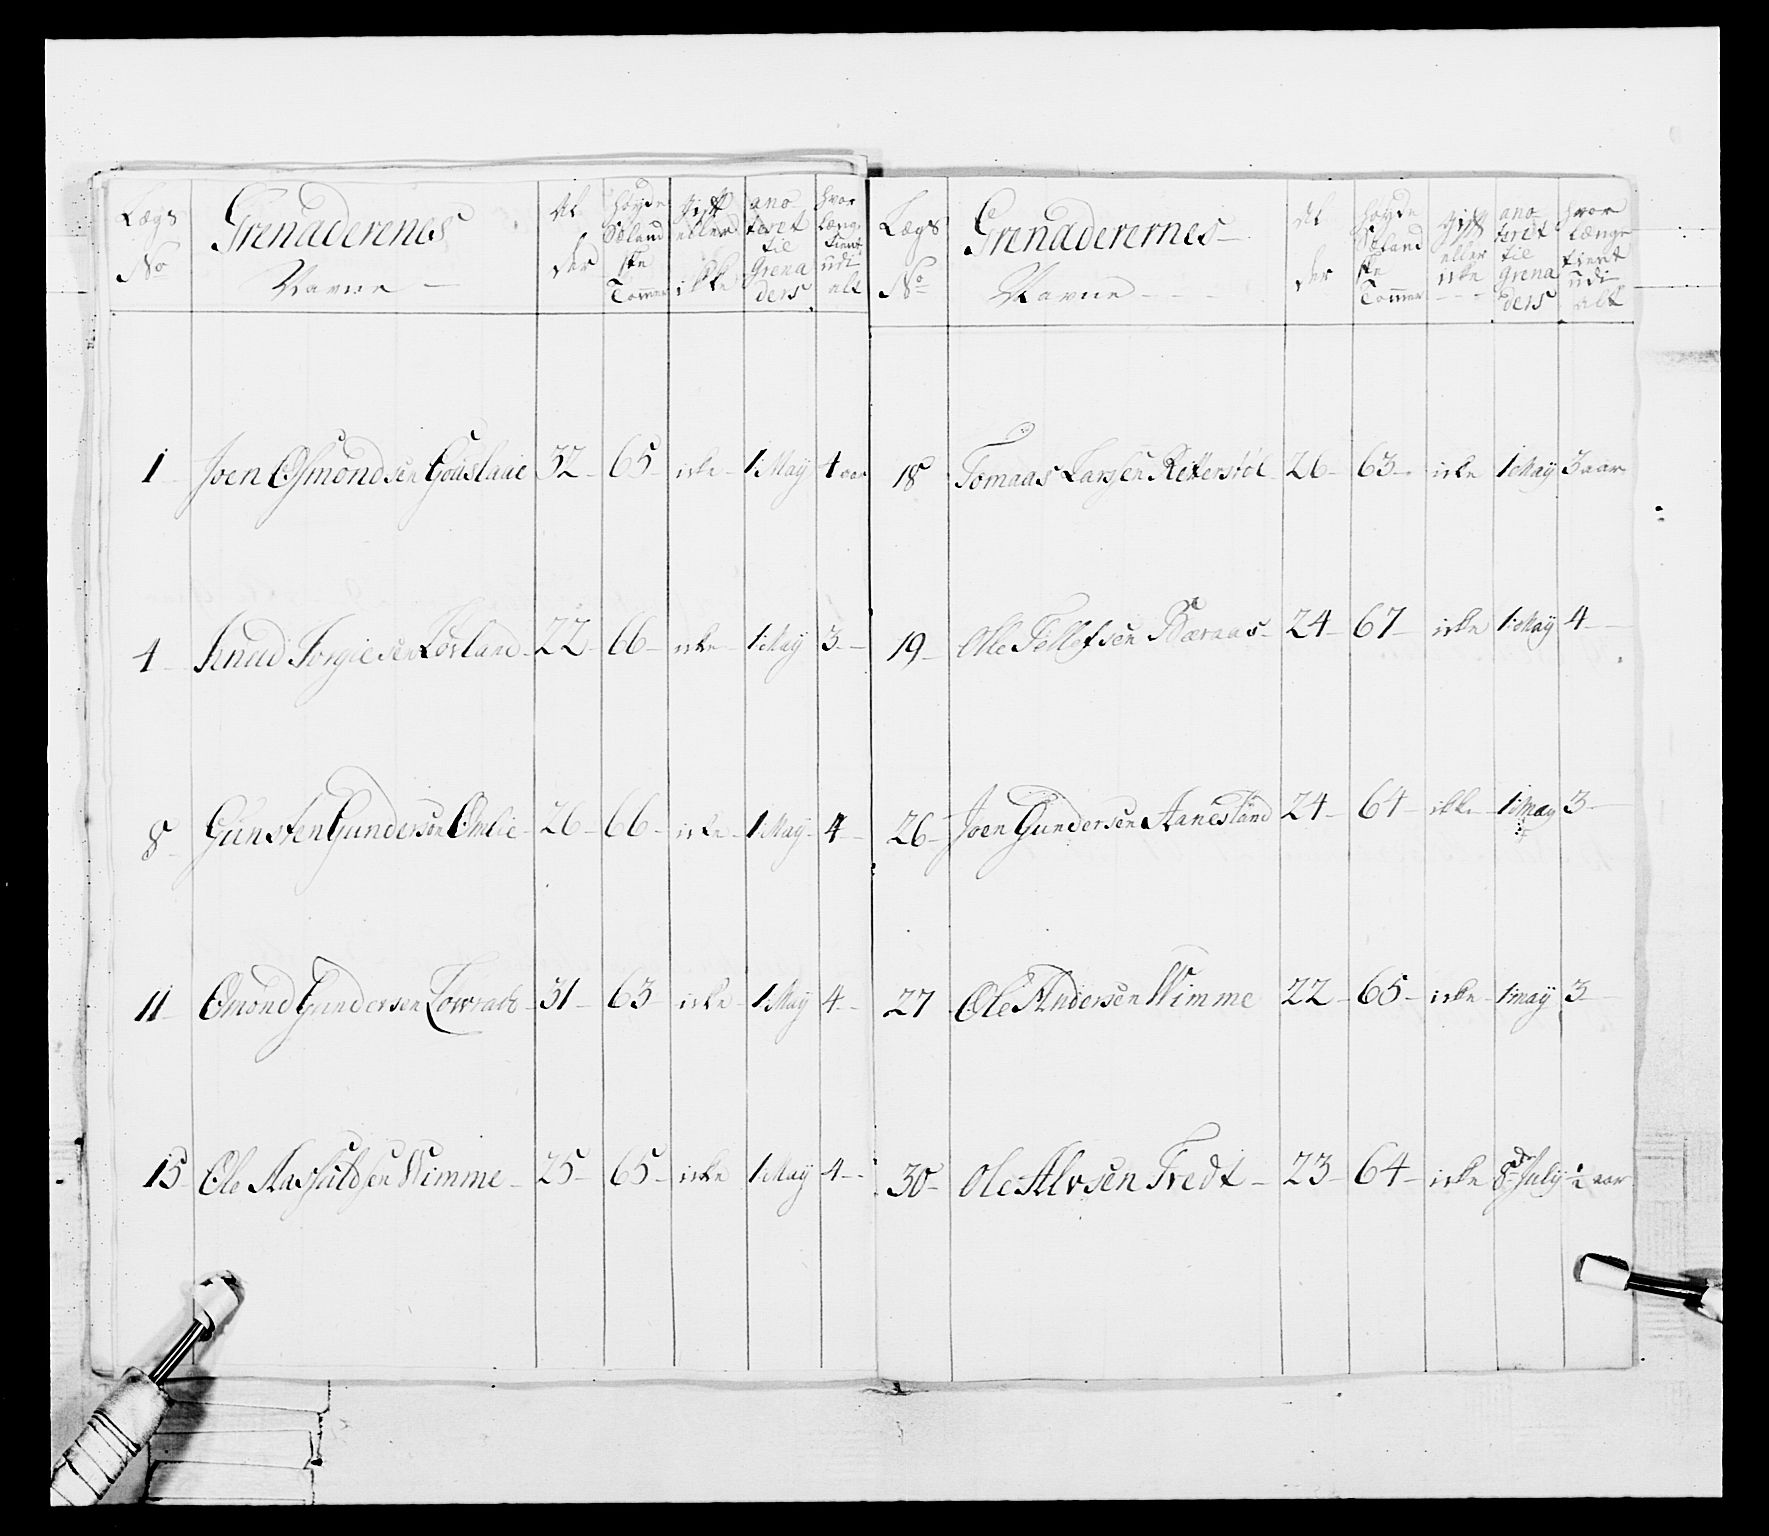 Lægs No
Grenaderenes Navne
Al der
Høyde Siælandske Tommer
gift eller ikke
anoteret til Grenaders
hvor længe tient udi alt
1 Joen Osmondsen 32 65 icke 1 May 4 aar
4 Knud Torgiesen Løvland 22 66 icke 1 May 3
8 Gunsten Gundersen Omlie 26 66 icke 1 May 4
11 Omond Gundersen 31 63 icke 1 May 4
15 Ole Aasuldsen Wimme 25 65 icke 1 May 4
Lægs No
Grenaderernes Navne
Al der
høyde Siælandske Tommer
gift eller icke
anoteret til Grenaders
hvor længe tient udi alt
18 Tomaas Larsen Retterstøl 26 63 icke 1 May 3 aar
19 Olle Tellefsen Bæraas 24 67 icke 1 May 4
26 Joen Gundersen Aanesland 24 64 ikke 1 May 3
27 Ole Andersen Wimme 22 65 icke 1 may 3
30 Ole Alvsen Tredt 23 64 icke 8de July ½ aar